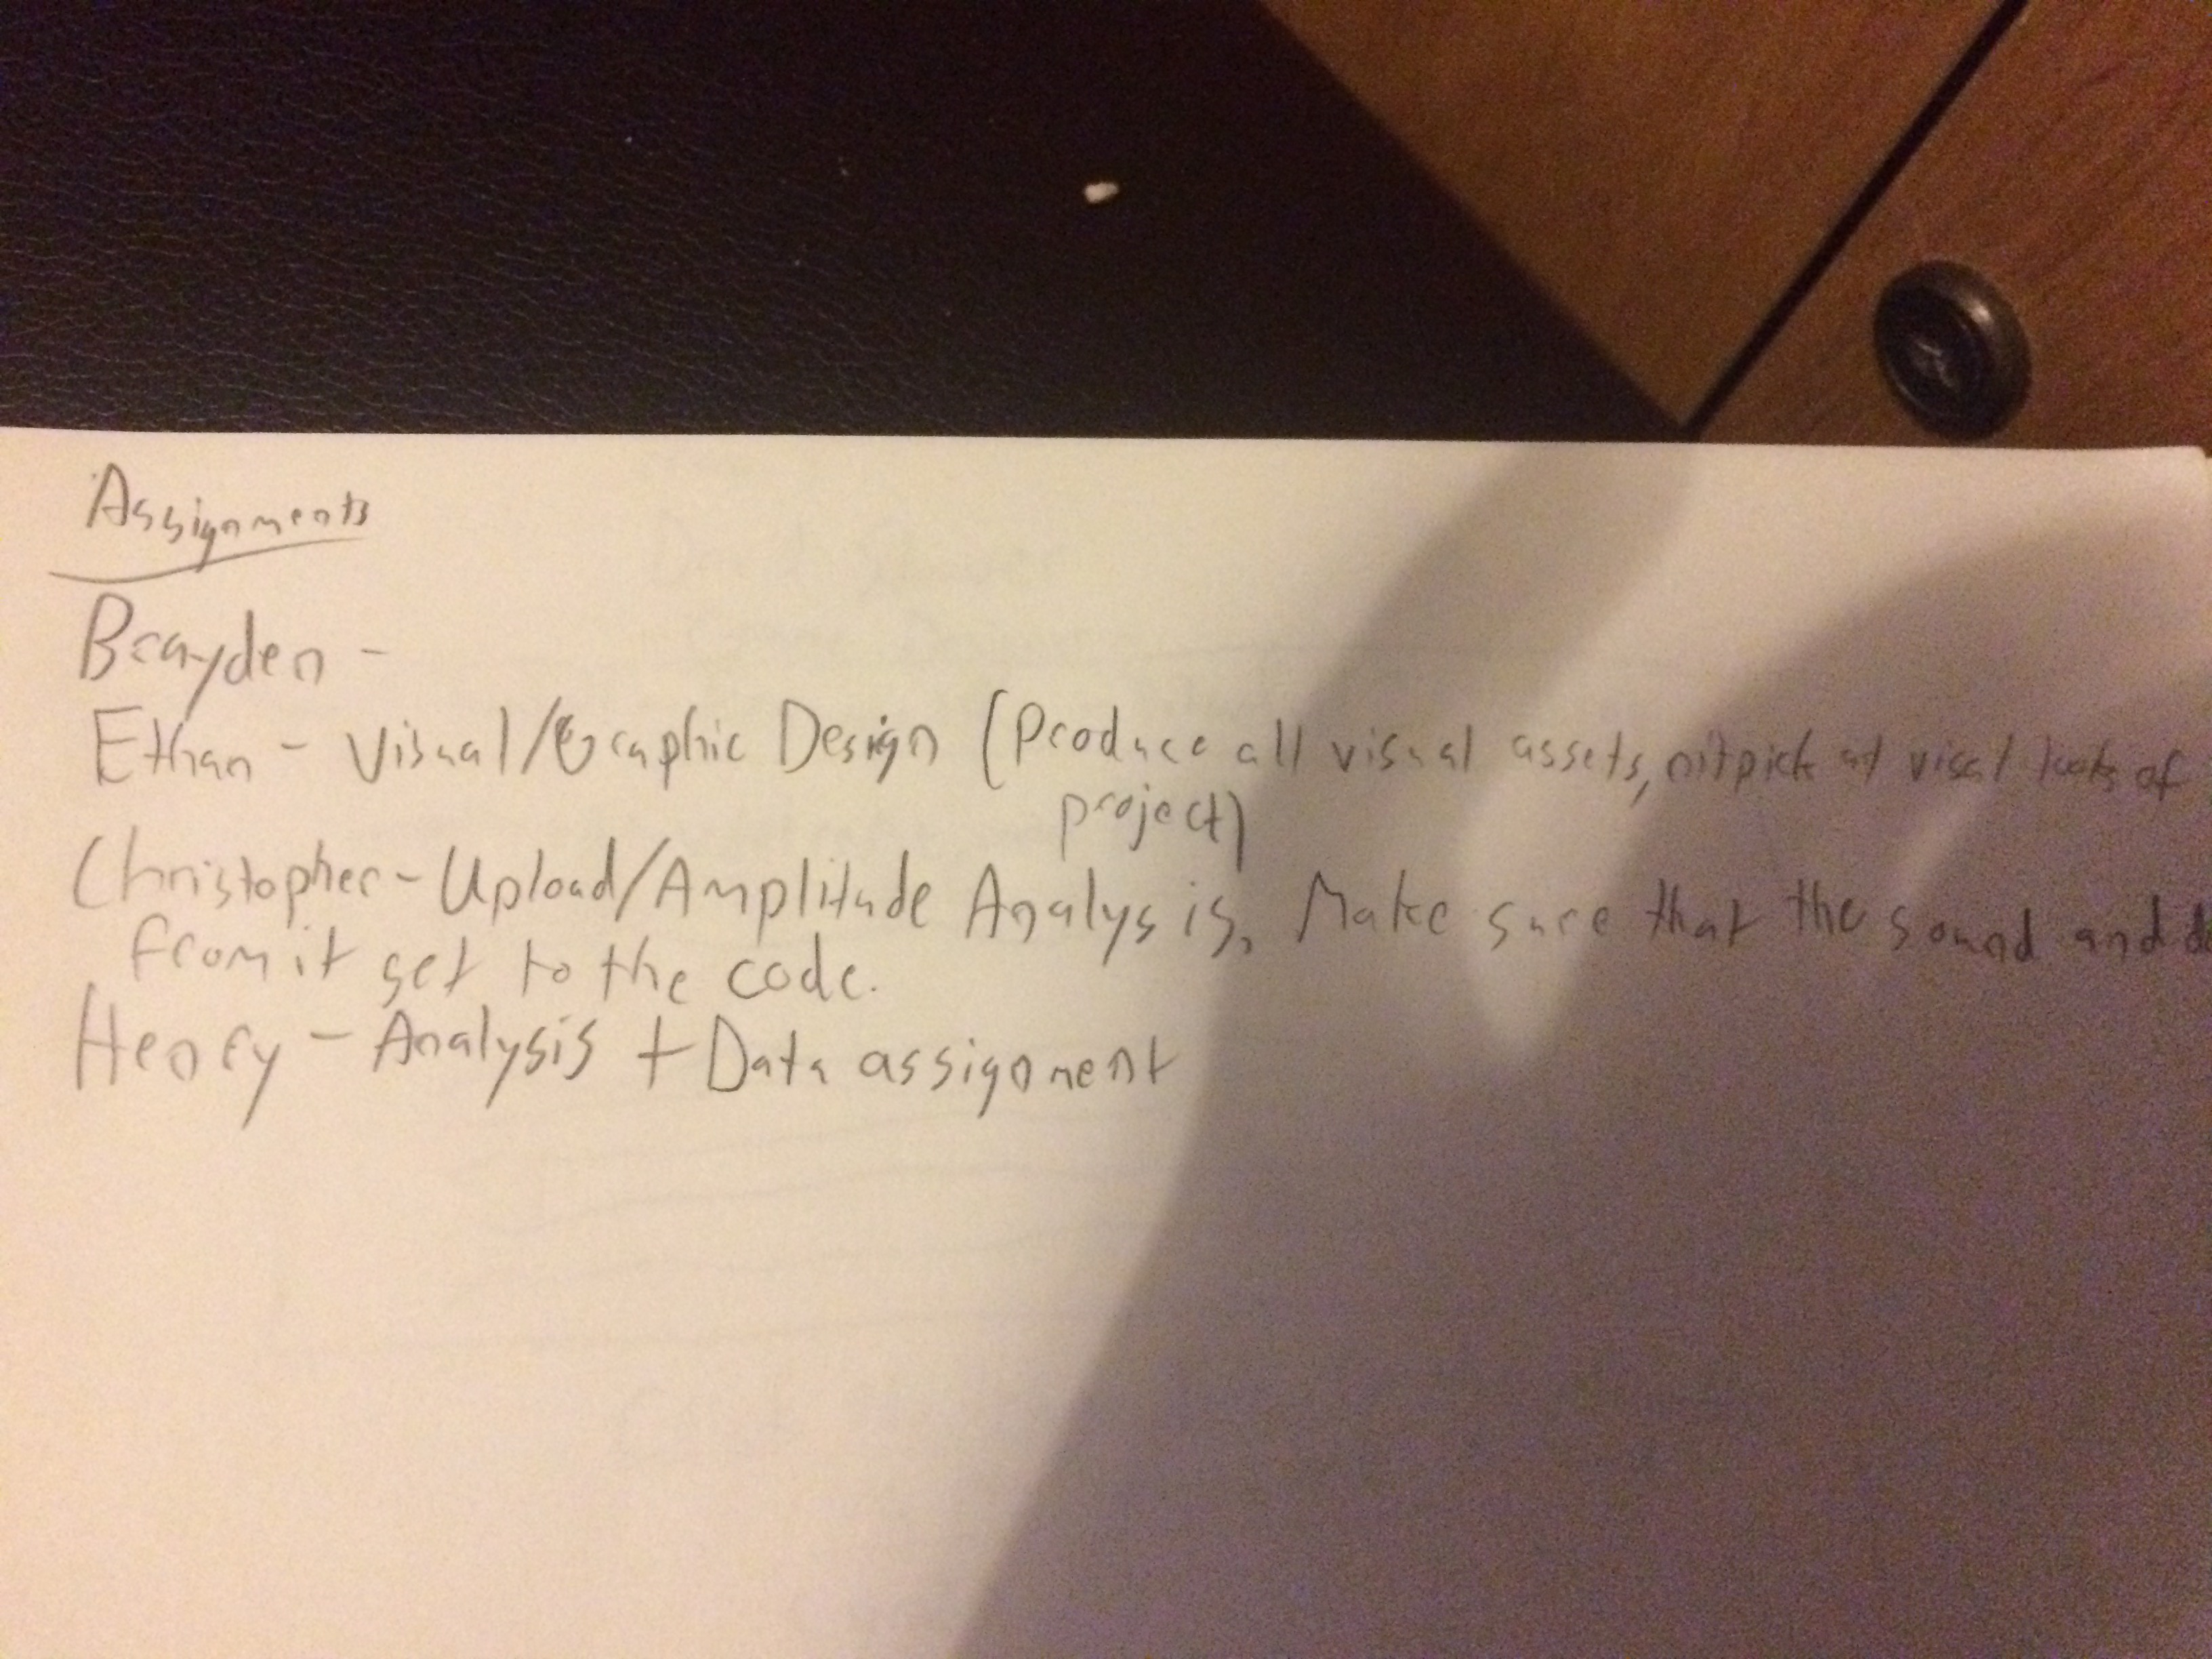 Assignments
Brayden -
Ethan - Visual/Graphic Design (Produce all visual assets, nitpick at visual looks of
project)
Christopher - Upload/Amplitude Analysis, Make sure that the sound and
from it get to the code.
Henry - Analysis + Data assignment